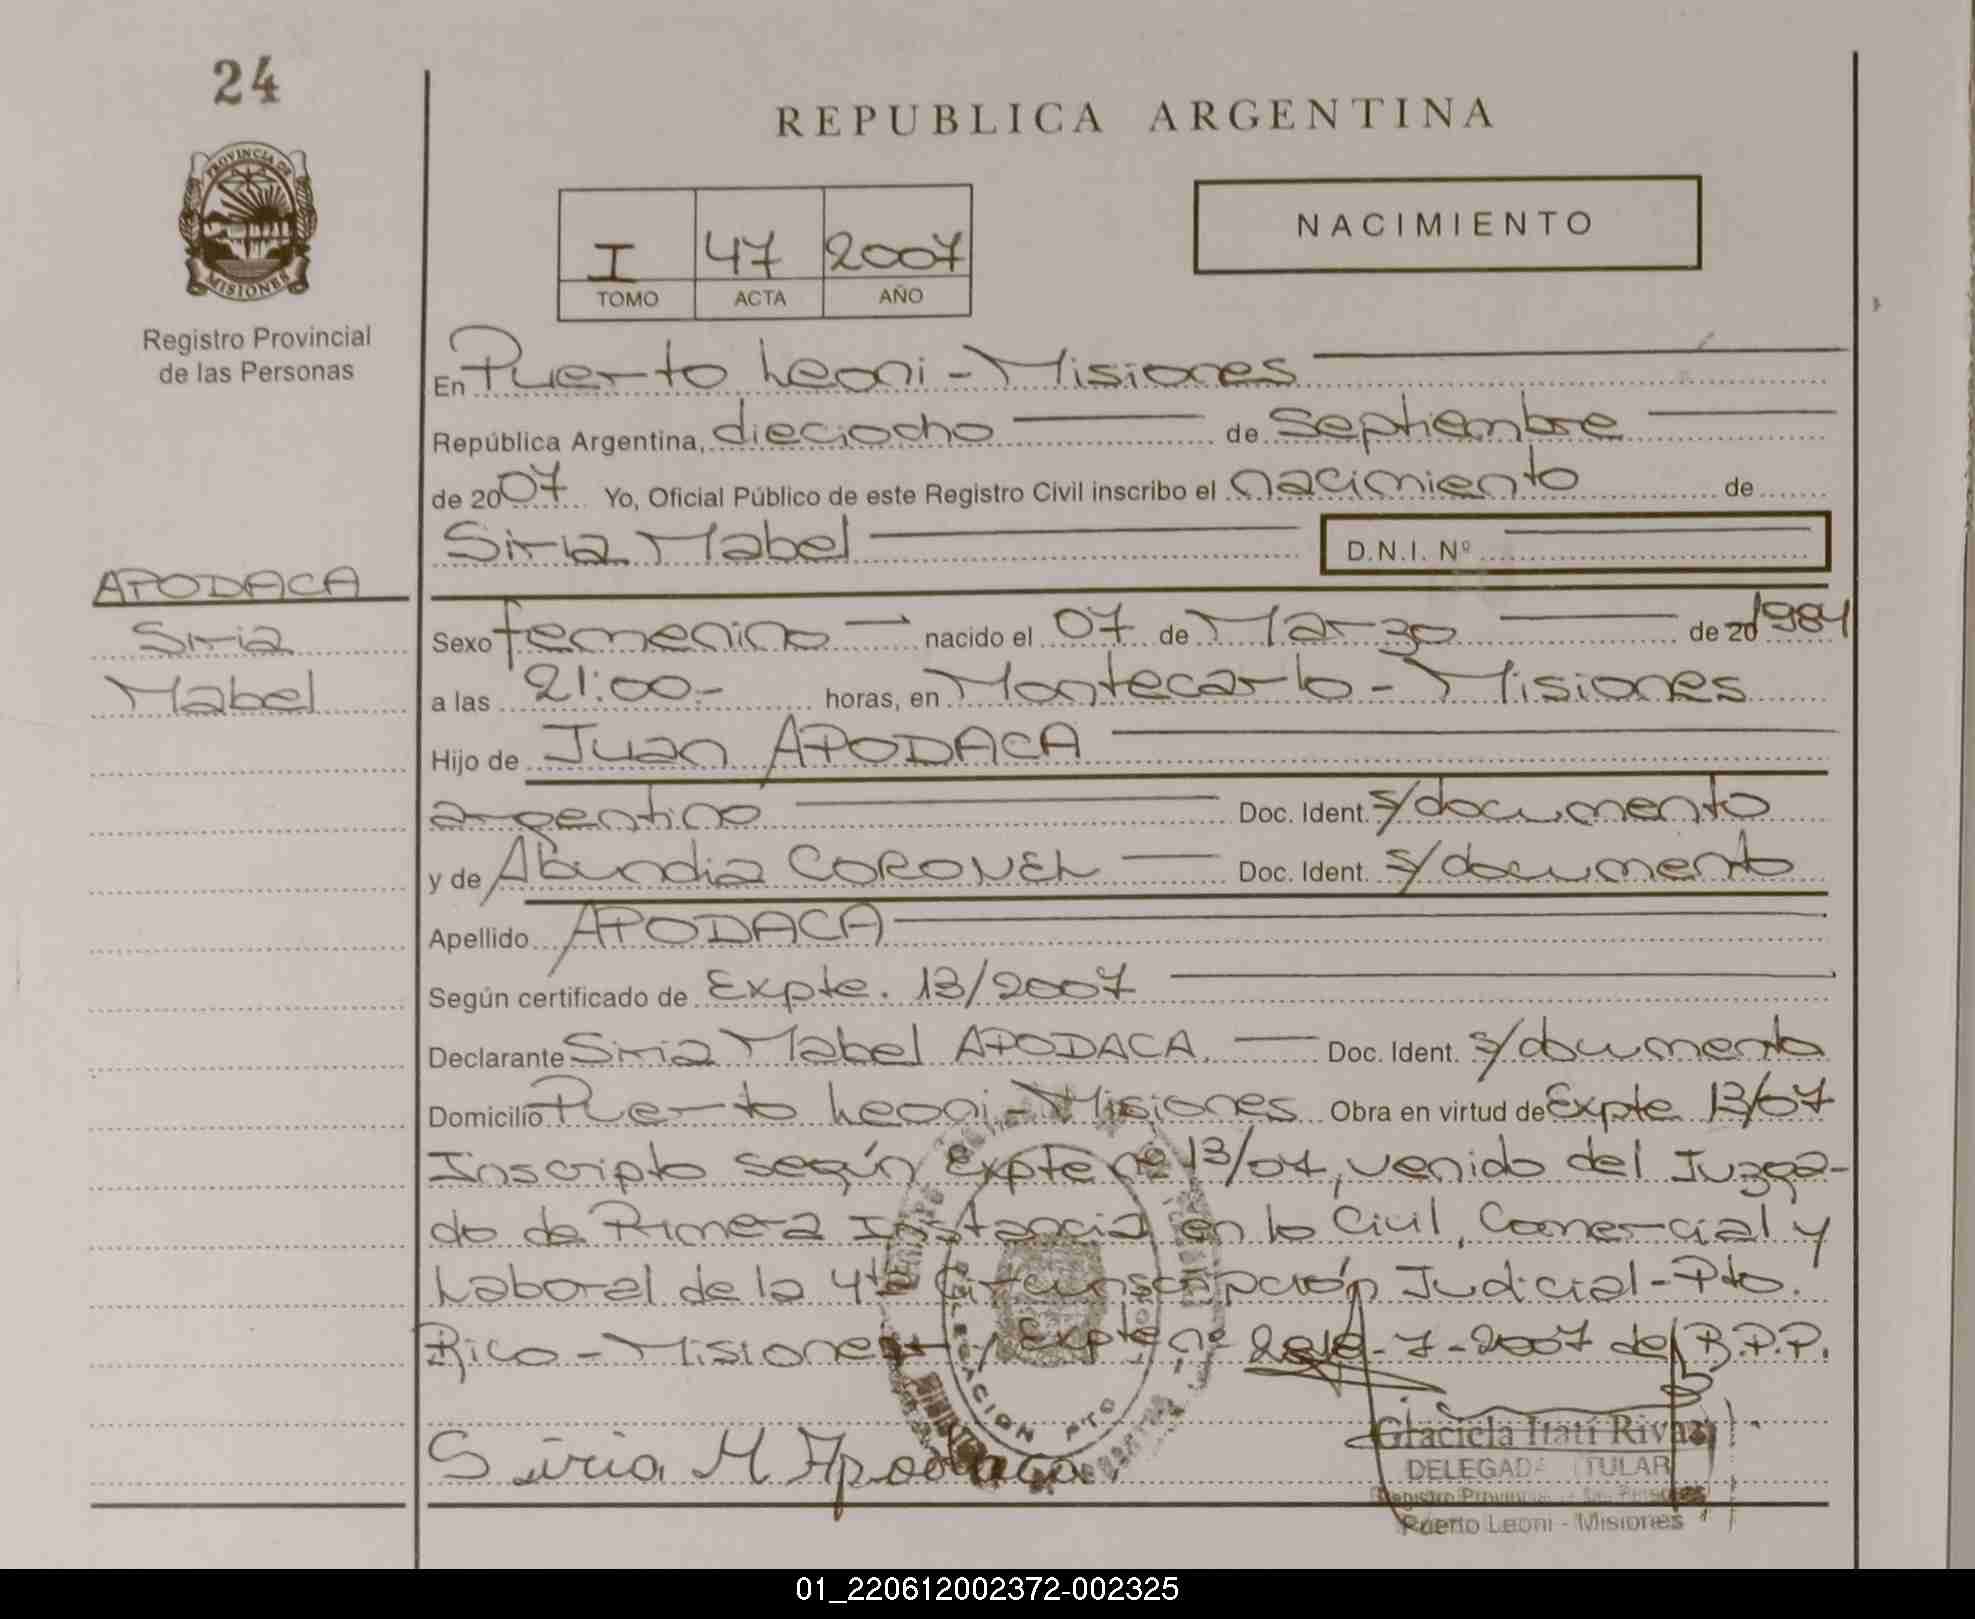 24
REPUBLICA ARGENTINA
PROVINCIA DE
MISIONES
Registro Provincial
de las Personas
NACIMIENTO
I 47 2007
TOMO ACTA AÑO
En Puerto Leoni - Misiones
República Argentina, dieciocho de septiembre
de 2007 Yo, Oficial Público de este Registro Civil inscribo el nacimiento de
Siria Mabel D.N.I. Nº
APODACA
Siria
Mabel
Sexo femenino nacido el 07 de Marzo de 20 1984
a las 21:00.- horas, en Montecarlo - Misiones
Hijo de Juan APODACA
argentino Doc. Ident. s/documento
y de Abundia CORONEL Doc. Ident. s/documento
Apellido APODACA
Según certificado de Expte. 13/2007
Declarante Siria Mabel APODACA. Doc. Ident. s/documento
Domicilio Puerto Leoni - Misiones Obra en virtud de Expte 13/07
Inscripto según Expte nº 13/07, venido del Juzga-
do de Primera Instancia en lo Civil, Comercial y
Laboral de la 4ta Circunscripción Judicial - Pto.
Rico - Misiones y Expte nº - 7 - 2007 del R.P.P.
Siria M Apodaca
DELEGACION PTO
Graciela Itatí Rivas
DELEGADA TITULAR
Registro Provincial de las Personas
Puerto Leoni - Misiones
01_220612002372-002325